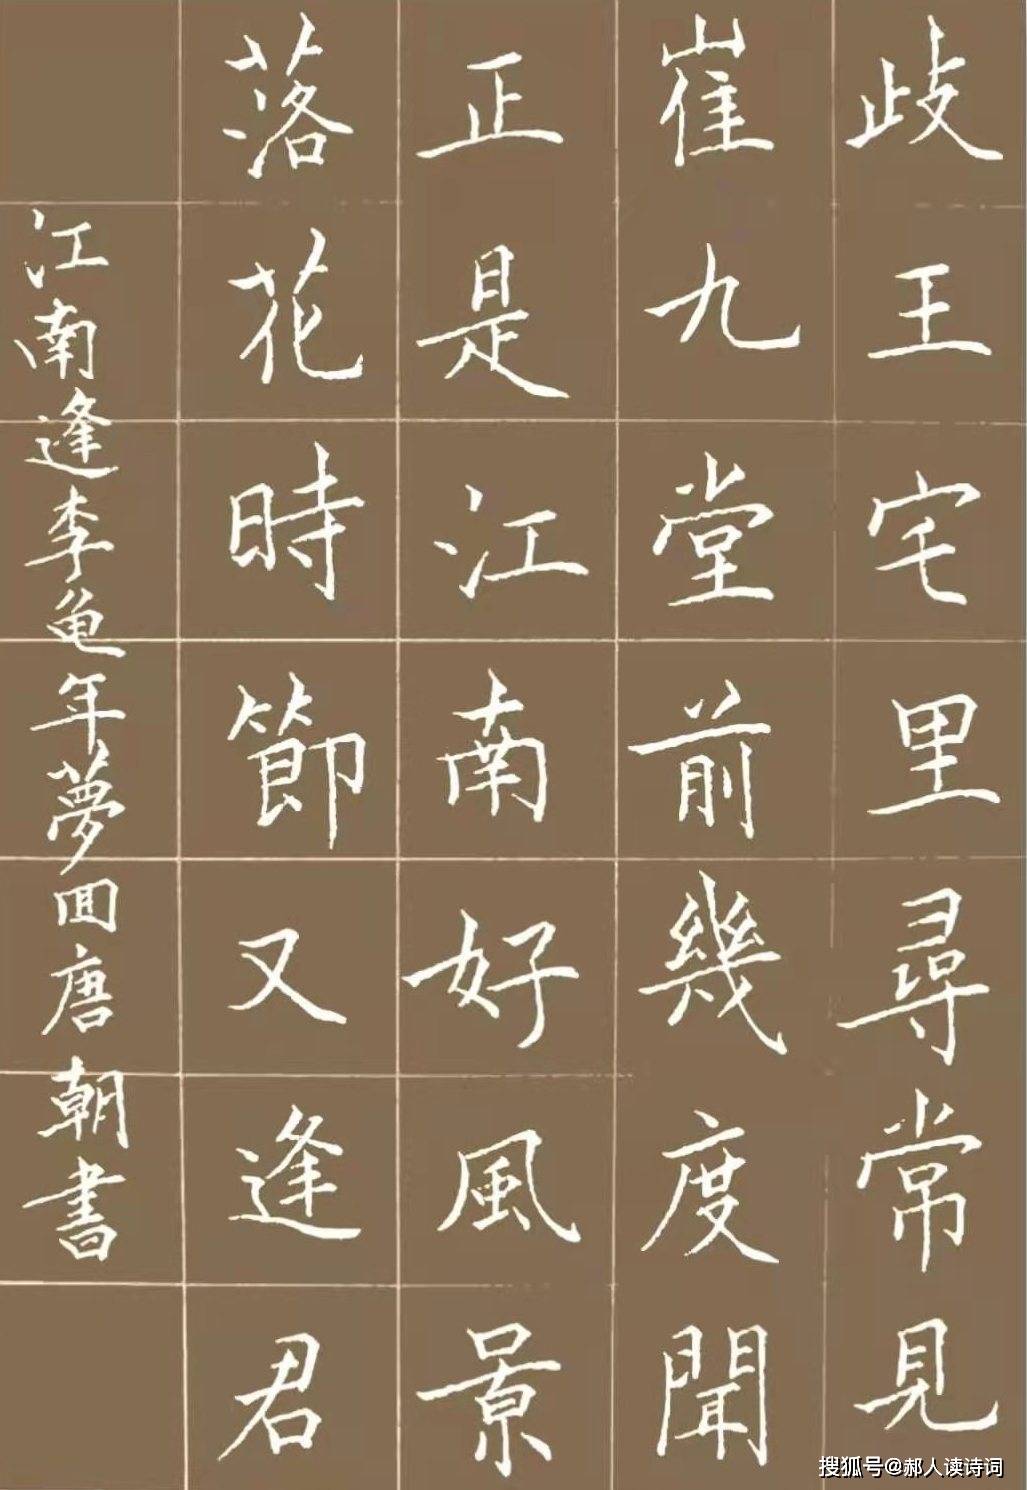 歧王宅里尋常見
崔九堂前幾度聞
正是江南好風景
落花時節又逢君
江南逢李龟年夢囬唐朝書
搜狐号@郝人读诗词